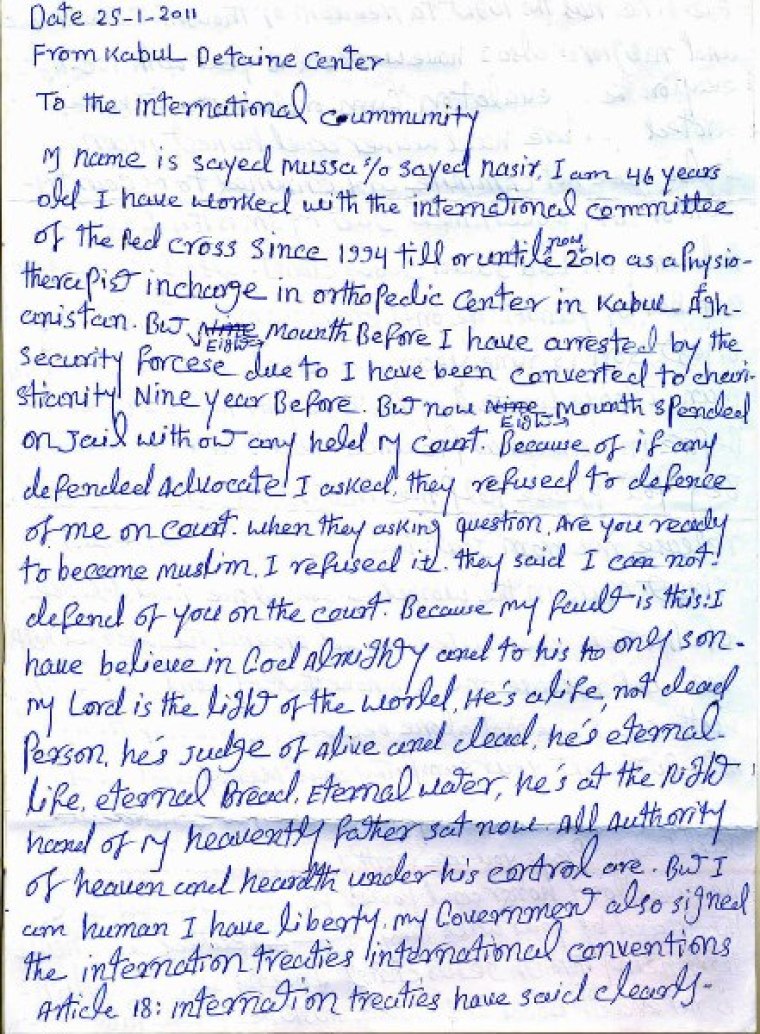 Date 25-1-2011
From Kabul Detaine Center
To the international coummunity
My name is sayed mussa s/o sayed nasir, I am 46 years
old I have worked with the international committee
of the Red Cross Since 1994 till or untile now 2010 as a Physio-
therapist incharge in orthopedic Center in Kabul Afgh-
anistan. But Eight Mounth Before I have arrested by the
Security forcese due to I have been converted to chari-
stianity Nine year Before. But now Eight Mounth spended
on Jail with out any held my court. Because of if any
defended Advocate I asked, they refused to defence
of me on court. when they asking question, Are you ready
to become muslim, I refused it. they said I can not
defend of you on the court. Because my fault is this: I
have believe in God Almighty and to his only son.
my Lord is the light of the world, He's alife, not dead
Person, he's Judge of alive and dead, he's eternal
life, eternal Bread, Eternal water, he's at the Right
hand of my heavently father sat now. All Authority
of heaven and hearth under his control are. But I
am human I have liberty, my Government also signed
the internation treaties international conventions
Article 18: internation treaties have said clearly-